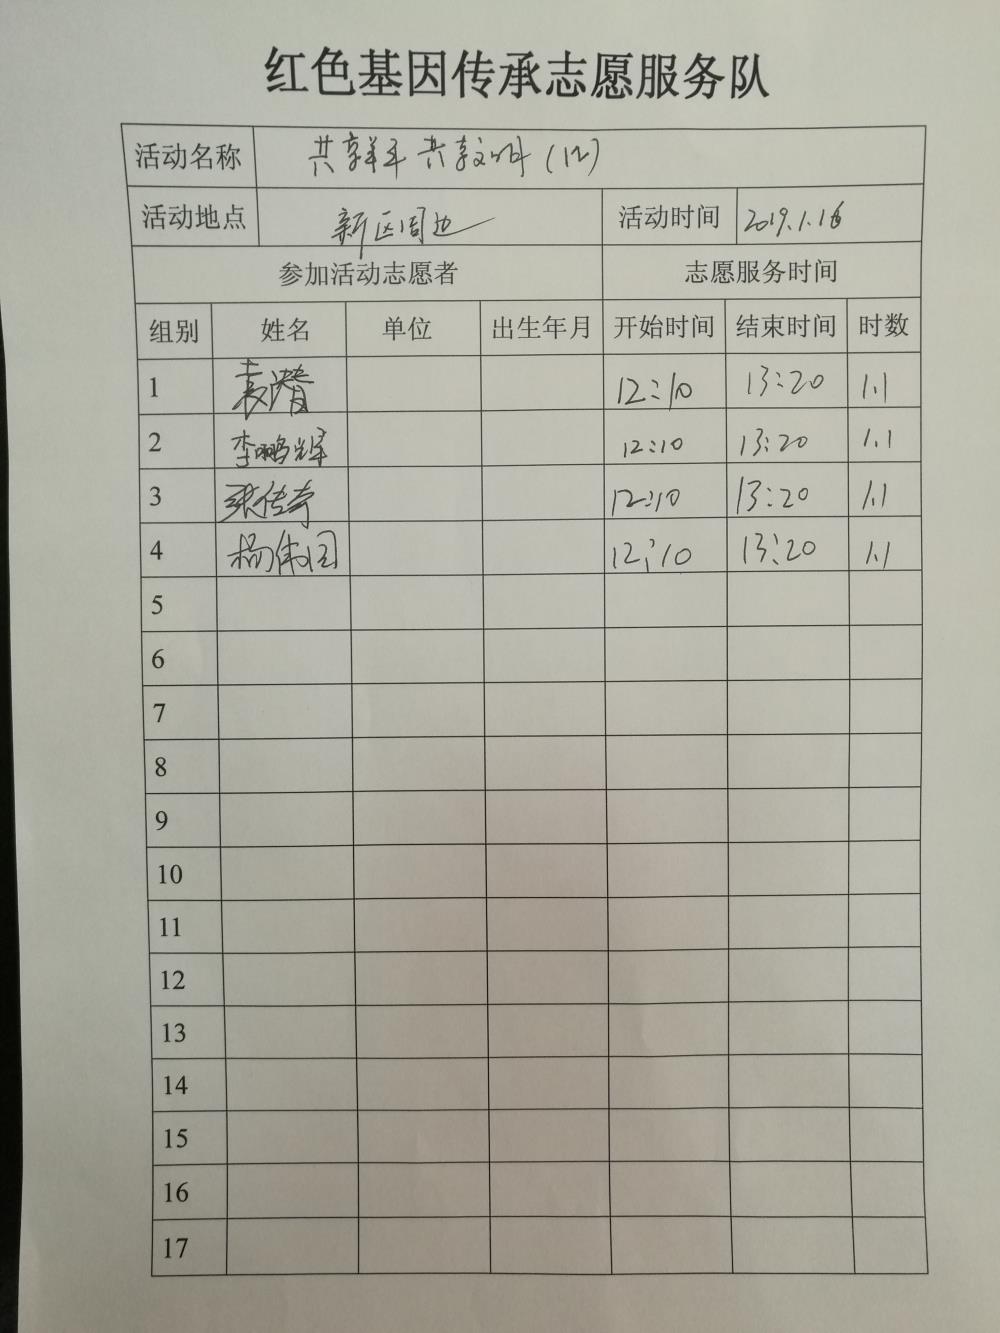 红色基因传承志愿服务队
活动名称 共享单车 共享文明 (12)
活动地点 新区周边 活动时间 2019.1.16
参加活动志愿者 志愿服务时间
组别 姓名 单位 出生年月 开始时间 结束时间 时数
1 袁 12:10 13:20 1.1
2 李鹏辉 12:10 13:20 1.1
3 张传奇 12:10 13:20 1.1
4 杨伟国 12:10 13:20 1.1
5
6
7
8
9
10
11
12
13
14
15
16
17